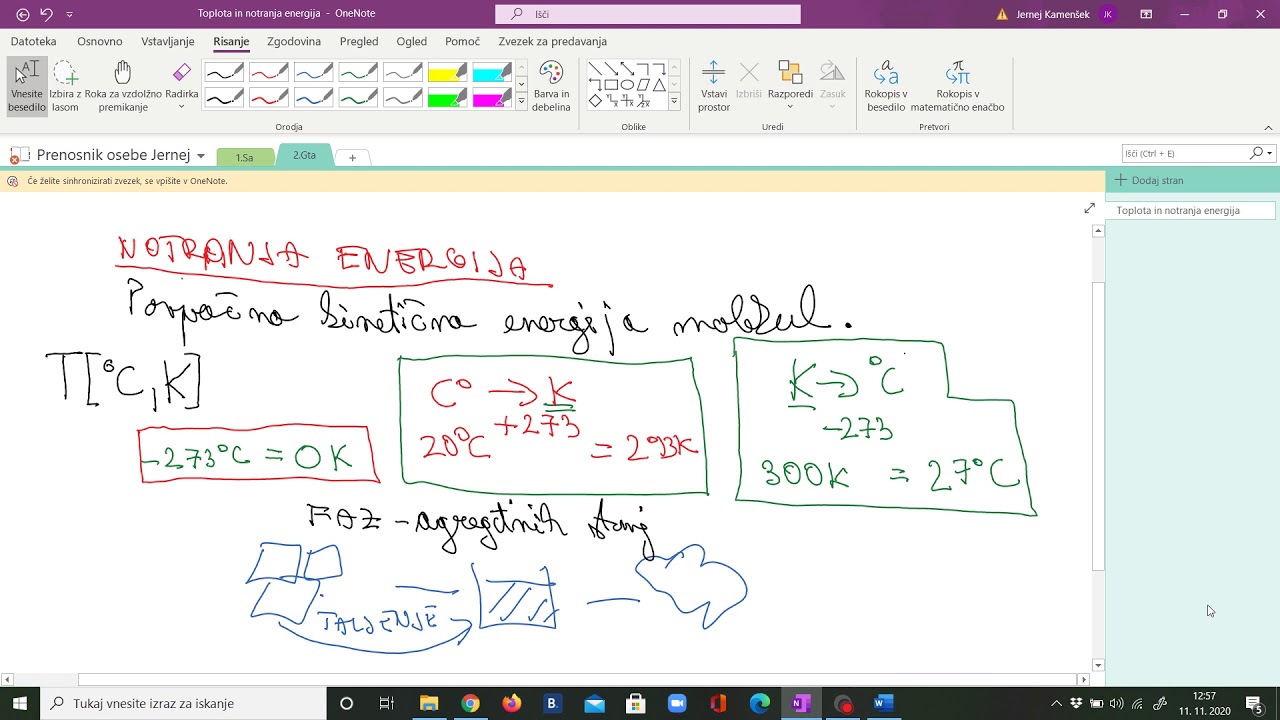 Toplota in notranja energija - OneNote
Išči
Jernej Kamenšek
JK
Datoteka Osnovno Vstavljanje Risanje Zgodovina Pregled Ogled Pomoč Zvezek za predavanja
Vnesite besedilo
Izbira z lasom
Roka za vzdolžno premikanje
Radirka
Barva in debelina
Vstavi prostor
Izbriši
Razporedi
Zasuk
Rokopis v besedilo
Rokopis v matematično enačbo
Orodja
Oblike
Uredi
Pretvori
Prenosnik osebe Jernej
1.Sa
2.Gta
Išči (Ctrl + E)
Če želite sinhronizirati zvezek, se vpišite v OneNote.
Dodaj stran
Toplota in notranja energija
NOTRANJA ENERGIJA
Povpečna kinetična energija molekul.
T[°C, K]
C° → K
+273
20°C = 293K
K → °C
-273
300K = 27°C
-273°C = 0K
FAZ - agregatnih stanj
TALJENJE
Tukaj vnesite izraz za iskanje
12:57
11. 11. 2020